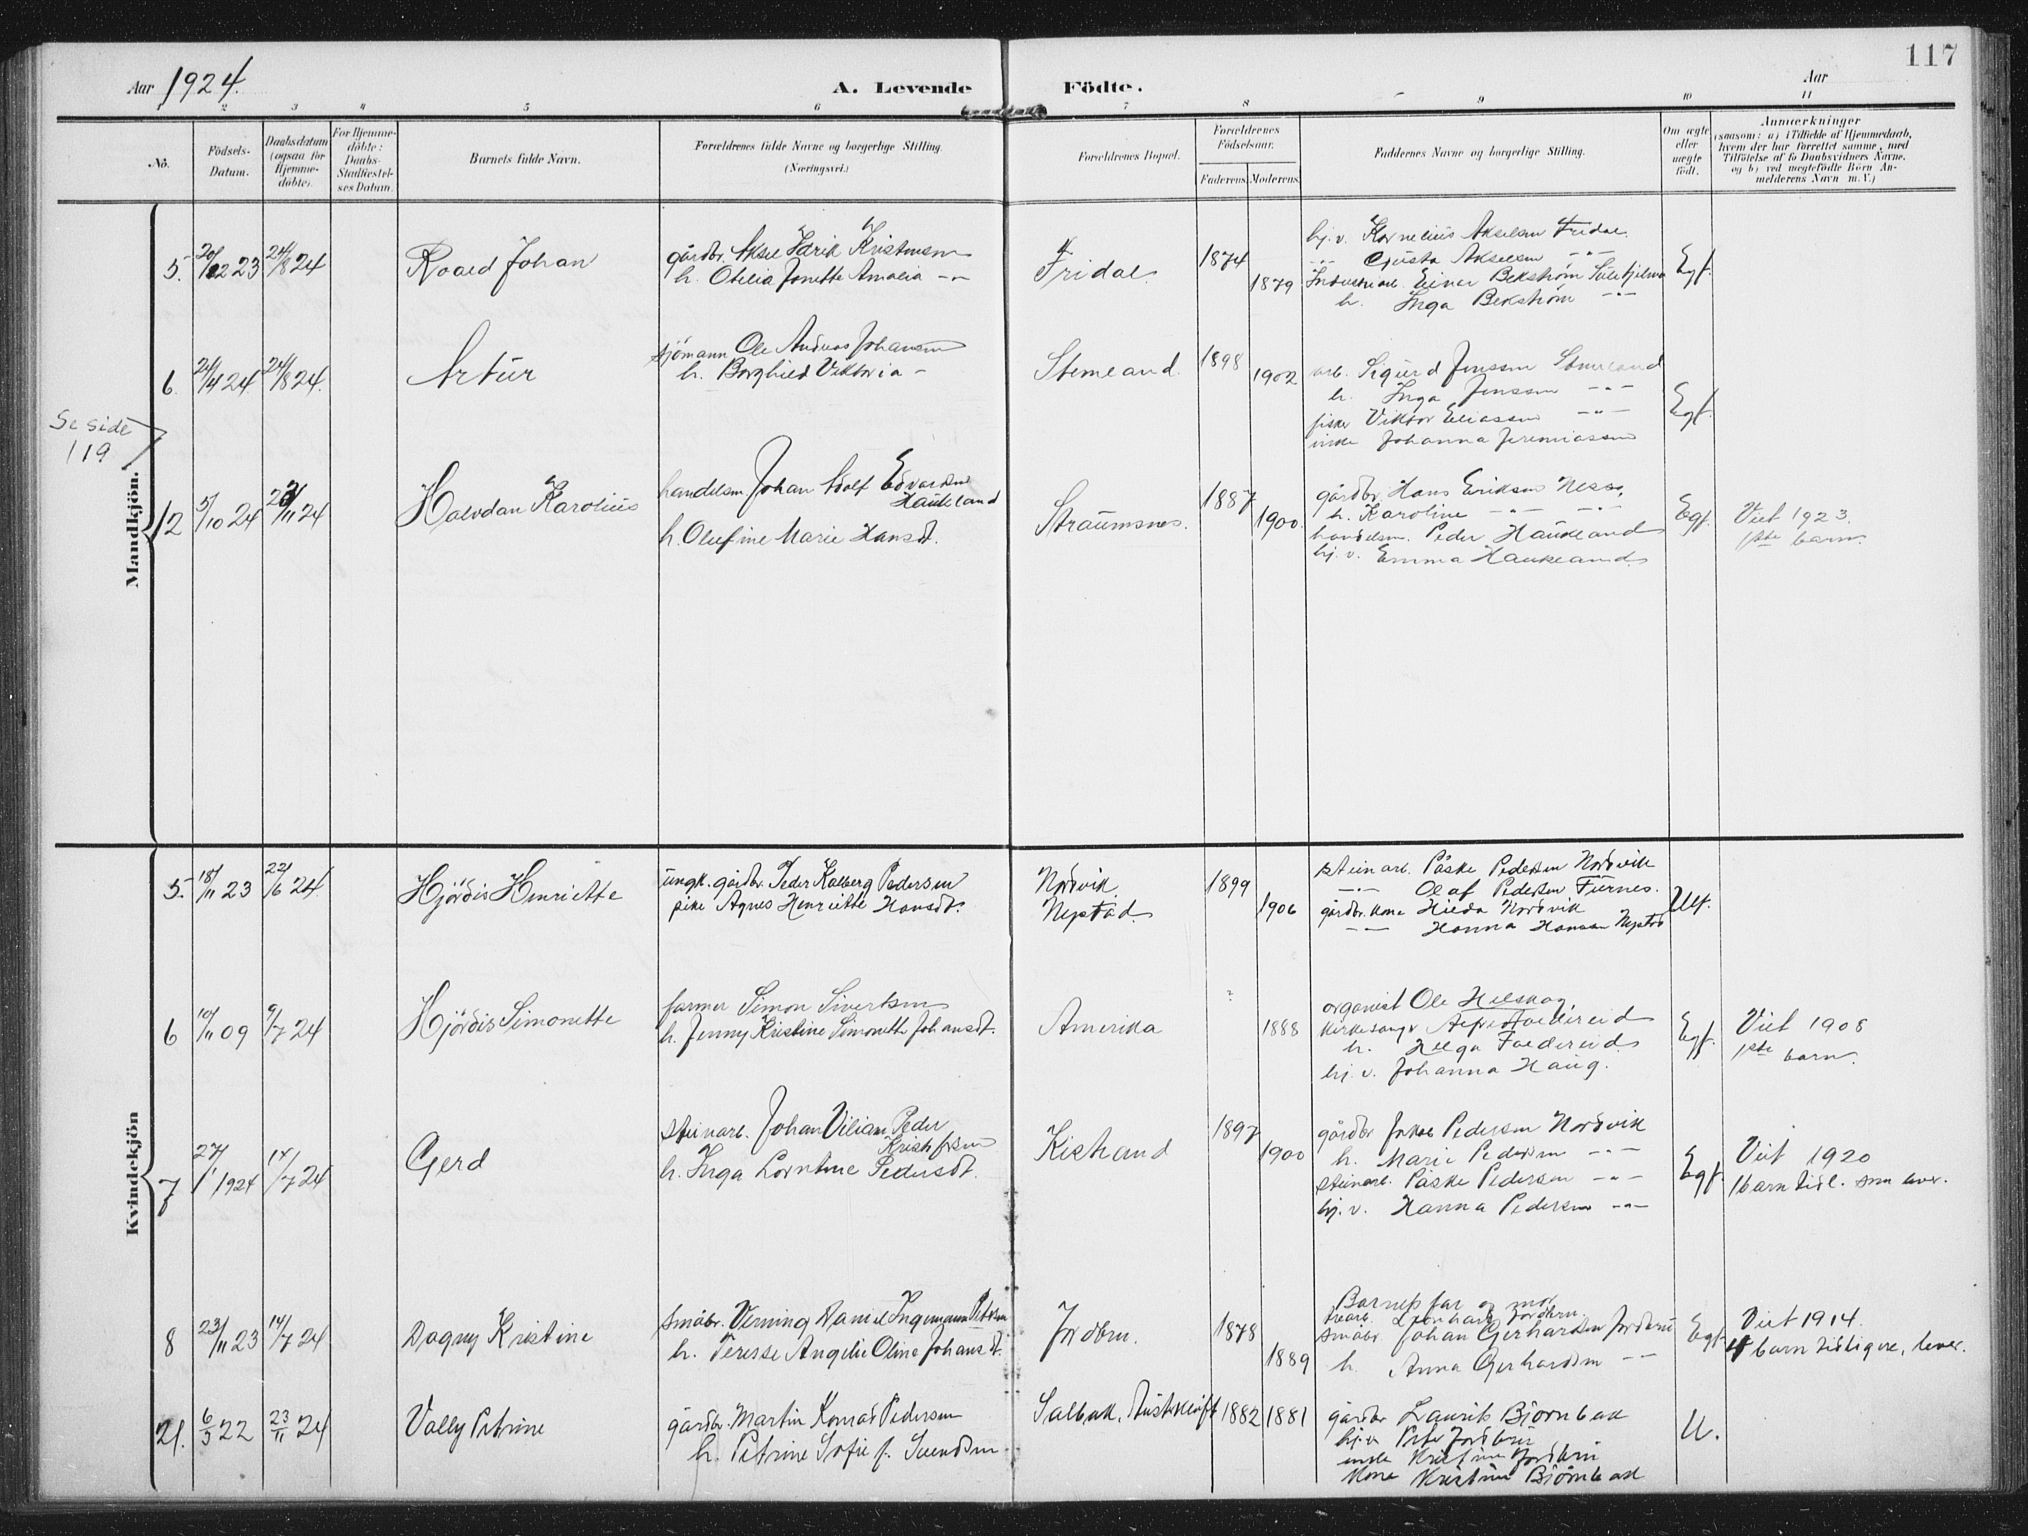 117
Aar 1924.
A. Levende Födte.
Aar
1 2 3 4 5 6 7 8 9 10 11
No.
Födsels-Datum.
Daabsdatum (ogsaa for Hjemme-döbte).
For Hjemme-döbte: Daabs-Stadfæstel-ses Datum.
Barnets fulde Navn.
Forældrenes fulde Navne og borgerlige Stilling.
(Næringsvei.)
Forældrenes Bopæl.
Forældrenes Födselsaar.
Faderens. Moderens.
Faddernes Navne og borgerlige Stilling.
Om ægte eller uægte födt.
Anmærkninger
(saasom: a) i Tilfælde af Hjemmedaab,
hvem der har forrettet samme, med
Tilföielse af to Daabsvidners Navne,
og b) ved uægtefödte Börn An-
melderens Navn m. V.)
Mandkjön.
5. 20/12 23 24/8 24 Roald Johan
gårdbr. Aksel Edrik Kristensen
h. Otelia Jonette Amalia -"-
Fridal. 1874 1879
hj. v. Kornelius Akselsen Fridal.
-"- Gjusta Akselsen -"-
Industriarb. Einar Bekström
h. Inga Bekström -"-
Egf.
6. 24/8 24. Artur
sjömann Ole Andreas Johansen
h. Borghild Viktoria -
Stemland. 1898 1902
arb. Sigurd Jenssen Stemland
h. Inga Jenssen -"-
fisker Viktor Eliassen -"-
enke Johanna Jeremiassen
Egf.
Se side
119
12 5/10 24 24 Halvdan Karolius
handelsm. Johan Adolf Edvardsen
Haukeland
h. Olufine Marie Hansdt.
Straumsnes. 1887 1900.
gårdbr. Hans Eriksen Ness,
h. Karoline -"- -"-
handelsm. Peder Haukeland
hj. v. Emma Haukeland.
Egf. Viet 1923.
1ste barn.
Kvindekjön
5. 18/11 23 22/6 24. Hjördis Henriette
ungk. gårdbr. Peder Kalberg Pedersen
pike Agnes Henriette Hansdt.
Nordvik.
Nystad. 1899 1906
steinarb. Påske Pedersen Nordvik
-"- Olaf Pedersen Furnes.
gårdbr. kone Hilda Nordvik
-"- Hanna Hansen Nystad
Uef.
6 10/11 09 9/7 24 Hjördis Simonette
farmer Simon Sivertsen
h. Jenny Kristine Simonette Johansdt.
Amerika ? 1888
organist Ole Helskog,
kirkesanger
h. Helga
hj. v. Johanna Haug.
Egf. Viet 1908
1ste barn.
7 27/1 1924 14/7 24 Gerd
steinarb. Johan Vilian Peder
Kristofersen
h. Inga Lorntine Pedersdt.
Kistrand 1897 1900
gårdbr Jakob Pedersen Nordvik
h. Marie Pedersen -"-
steinarb. Påske Pedersen -"-
hj. v. Hanna Pedersen -"-
Egf. Viet 1920
1 barn tidl. som lever.
8 23/11 23 14/7 24 Dagny Kristine
småbr. Verning Daniel Ingemann Petersen
h. Terese Angelie Oline Johansdt.
Jordbru. 1878 1889
Barnets far og mor
Leonhard Jordbru.
småbr. Johan Gerhardsen Jordbru
h. Anna Gerhardsen -"-
Egf. Viet 1914.
4 barn tidligere, lever.
21. 6/3 22 23/11 24 Vally Petrine
gårdbr. Martin Konrad Pedersen
h. Petrine Sofie f. Svendsen
Salbak, 1882 1881
gårdbr Laurits Björnbak
hj. v Peter Jordbru
enke Kristine Jordbru
Kone Kristine Björnbak
U.